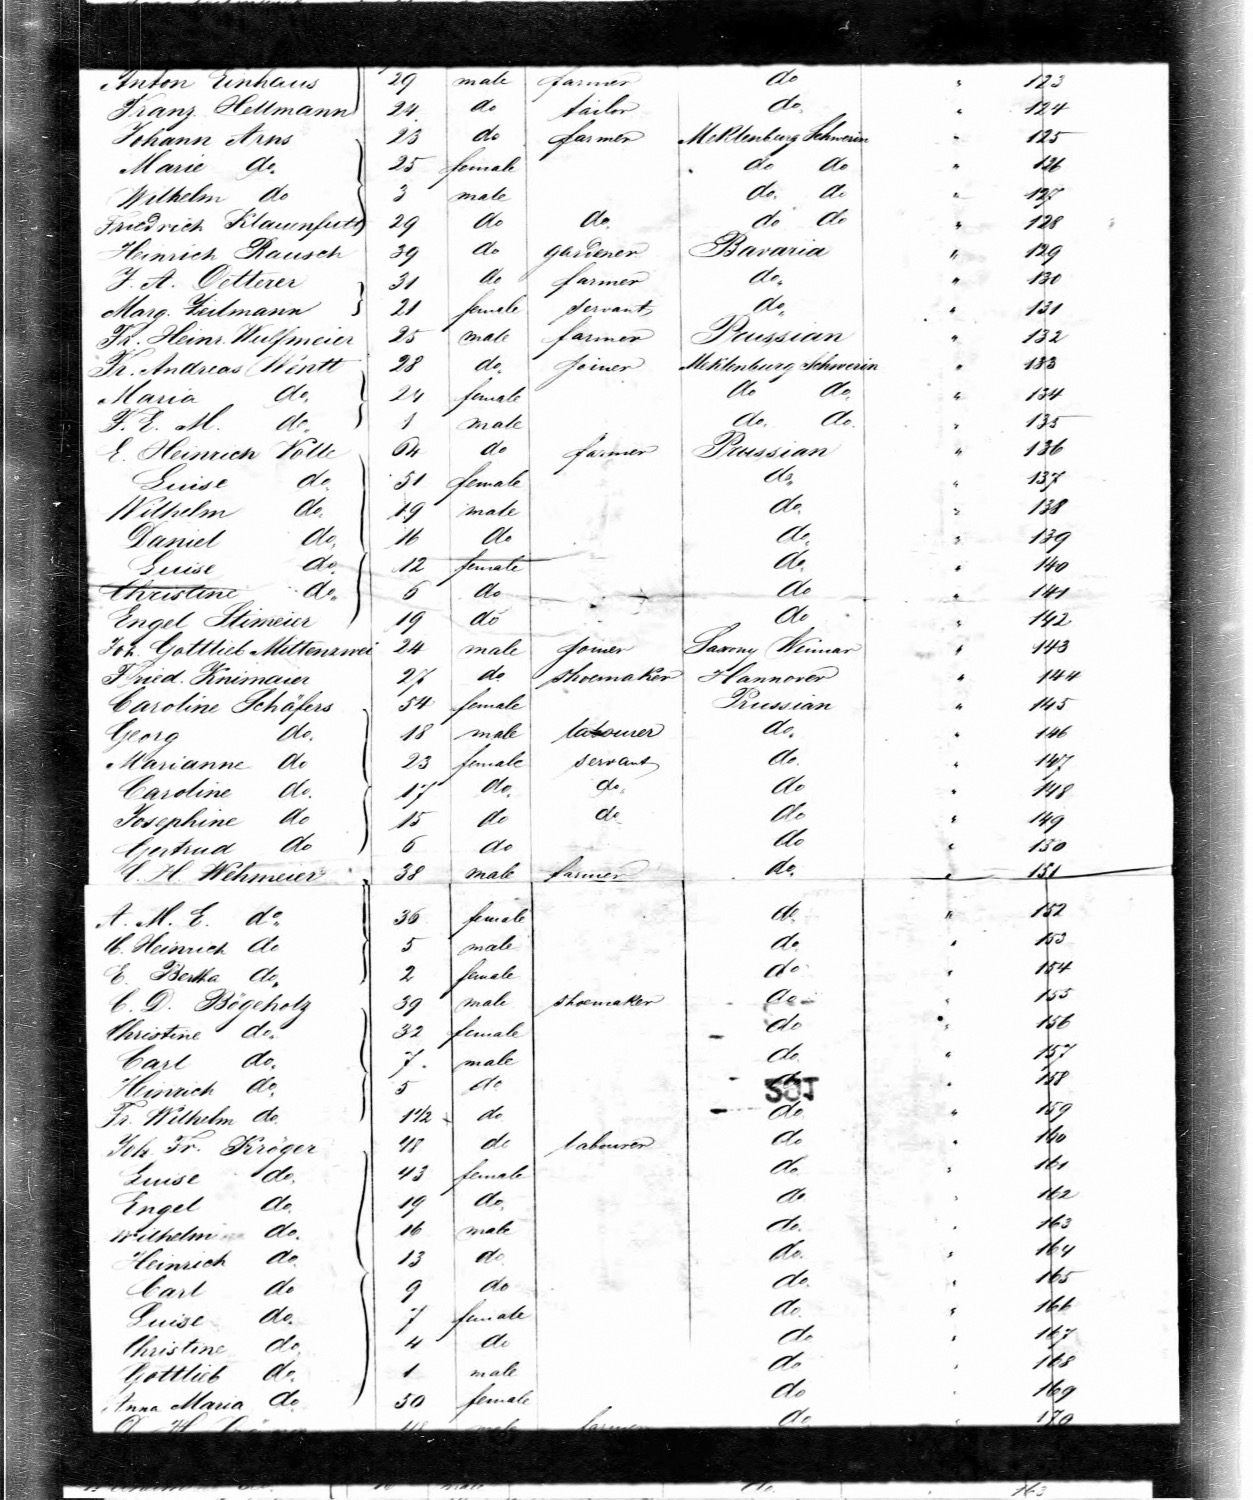 Anton Einhaus 29 male farmer do " 123
Franz Hellmann 24 do tailor do. " 124
Johann Arns 23 do farmer Meklenburg Schwerin " 125
Marie do. 25 female do do " 126
Wilhelm do 3 male do. do " 127
Friedrich 29 do do. do do " 128
Heinrich Rausch 39 do gardener Bavaria " 129
F. A. Oetterer 31 do farmer do. " 130
Marg. Zeilmann 21 female servant do. " 131
Fr. Heinr. Wulfmeier 25 male farmer Prussian " 132
Fr. Andreas 28 do. joiner Meklenburg Schwerin " 133
Maria do. 24 female do do. " 134
F. E. M. do. 1 male do. do. " 135
E. Heinrich Nolte 64 do farmer Prussian " 136
Luise do. 51 female do. " 137
Wilhelm do. 19 male do. " 138
Daniel do. 16 do do. " 139
Luise do. 12 female do. " 140
Christine do. 6 do do " 141
Engel Stimeier 19 do do " 142
Joh. Gottlieb Mittenzwei 24 male joiner Saxony Weimar " 143
Fried. Knimaier 27 do shoemaker Hannover " 144
Caroline Schäfers 54 female Prussian " 145
Georg do. 18 male labourer do. " 146
Marianne do 23 female servant do. " 147
Caroline do. 17 do. do. do " 148
Josephine do 15 do do do " 149
Gertrud do 6 do do " 150
C. H. Wehmeier 38 male farmer do. " 151
A. M. E. do. 36 female do. " 152
C. Heinrich do 5 male do. " 153
E. Bertha do. 2 female do " 154
C. D. Bögeholz 39 male shoemaker do " 155
Christine do. 32 female do " 156
Carl do. 7. male do. " 157
Heinrich do. 5 do do " 158
SGT
Fr. Wilhelm do. 1 1/2 do. do. " 159
Joh. Fr. Kröger 48 do labourer do " 160
Luise do. 43 female do. " 161
Engel do. 19 do. do " 162
Wilhelm do. 16 male do. " 163
Heinrich do. 13 do do. " 164
Carl do 9 do do. " 165
Luise do. 7 female do. " 166
Christine do. 4 do do " 167
Gottlieb do. 1 male do " 168
Anna Maria do. 50 female do " 169
male farmer do. " 170
male do. 163